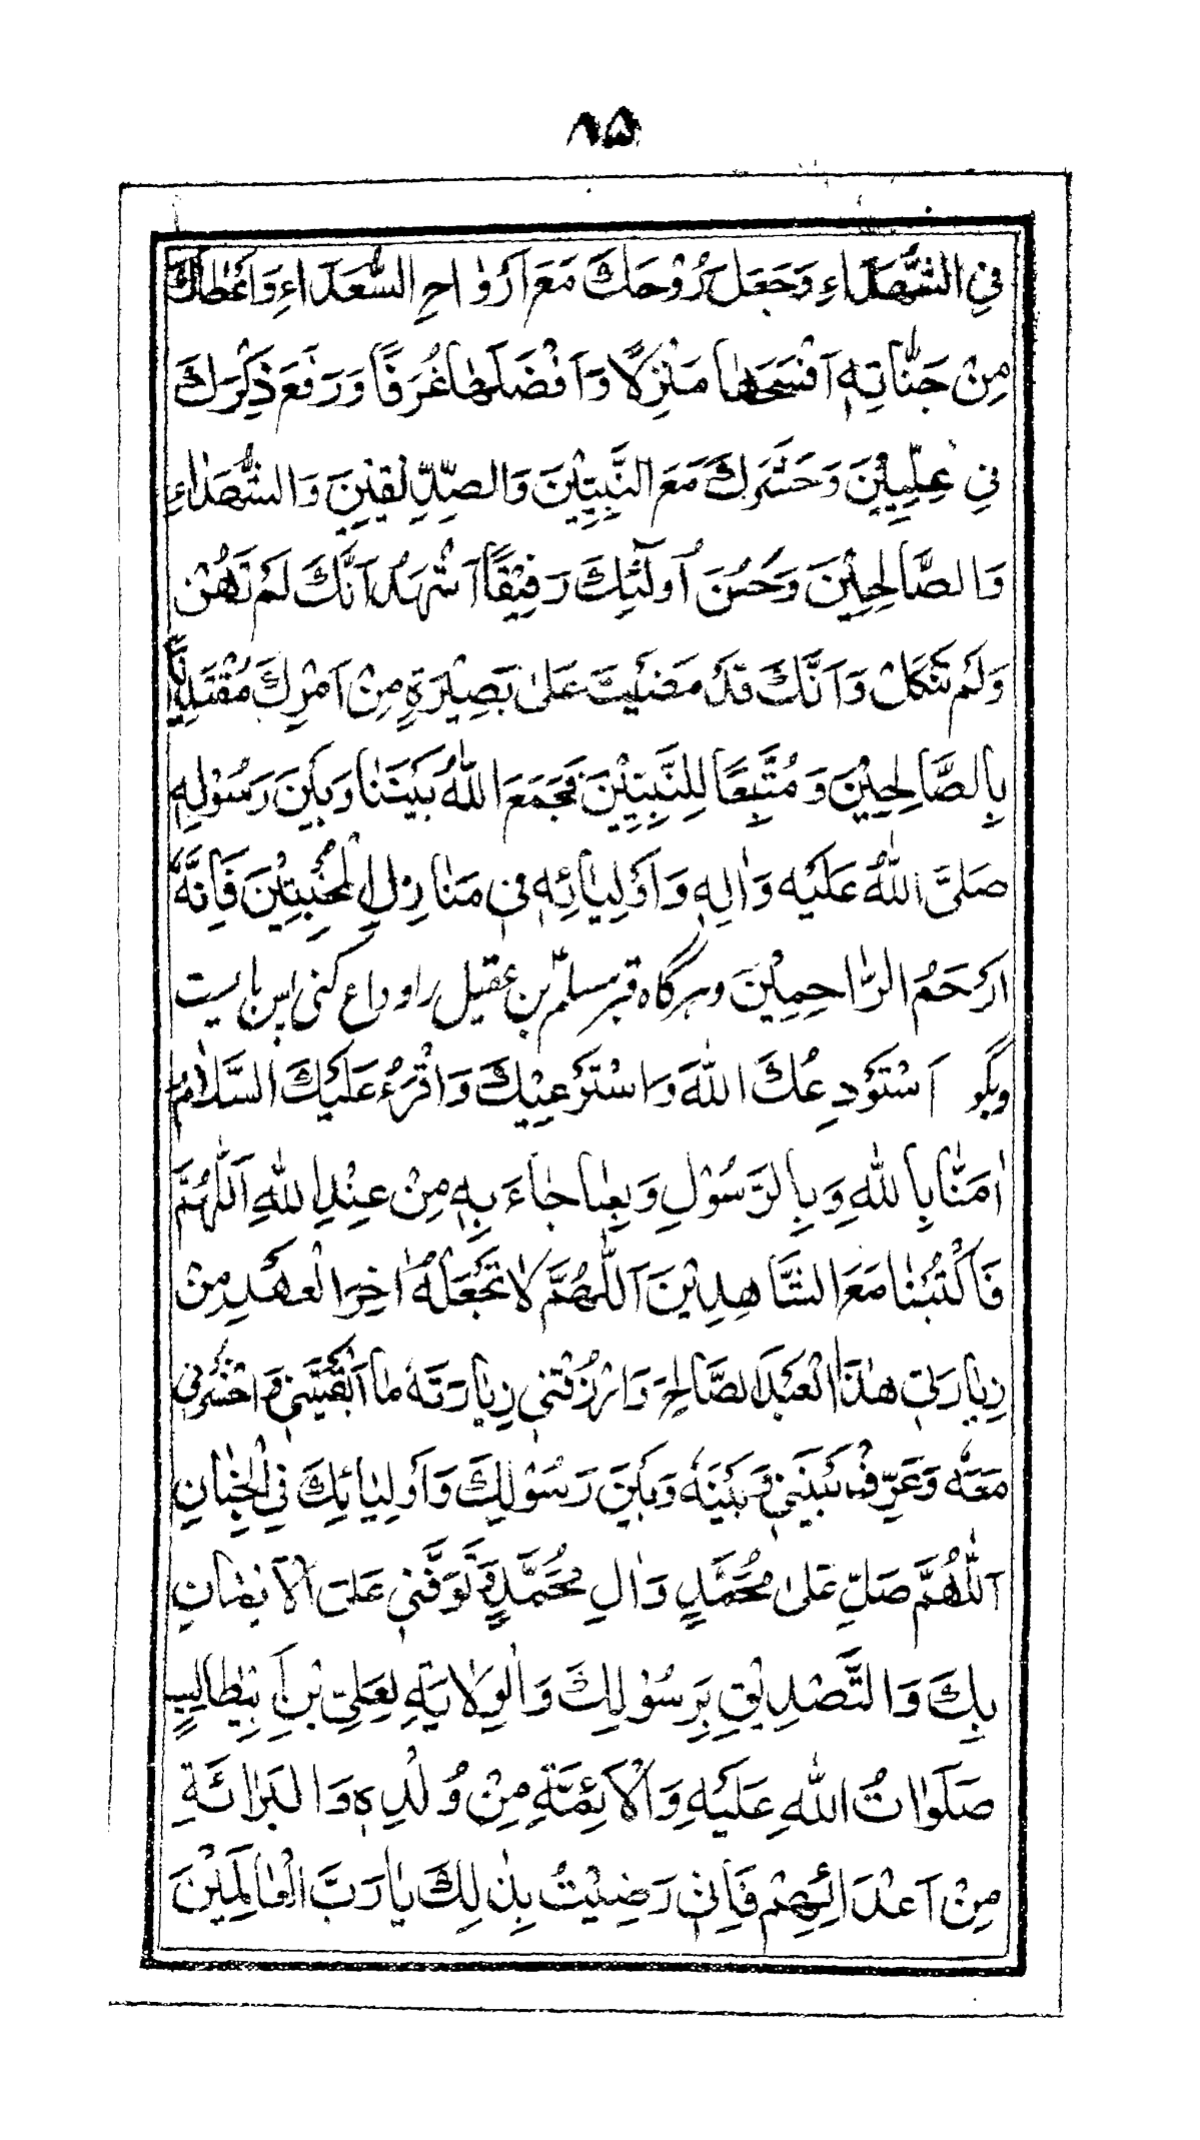 ۸۵
فِي الشُّهَدَاءِ وَجَعَلَ رُوْحَكَ مَعَ اَرْوٰاحِ السُّعَدَاءِ وَاَعْطَاكَ
مِنْ جَنّٰاتِهٖ اَفْسَحَهٰا مَنْزِلًا وَاَفْضَلَهٰا غُرَفًا وَرَفَعَ ذِكْرَكَ
فِي عِلِّيِّيْنَ وَحَشَرَكَ مَعَ النَّبِيّيْنَ وَالصِّدِّيْقيْنَ وَالشُّهَدٰاءِ
وَالصَّالِحِيْنَ وَحَسُنَ اُولٰٓئِكَ رَفِيْقًا اَشْهَدُ اَنَّكَ لَمْ تَهُنْ
وَلَمْ تَنْكُلْ وَاَنَّكَ قَدْ مَضَيْتَ عَلىٰ بَصِيْرَةٍ مِنْ اَمْرِكَ مُقْتَدِيًا
بِالصَّالِحِيْنَ وَمُتَّبِعًا لِلنَّبِيِّيْنَ فَجَمَعَ اللّٰهُ بَيْنَنٰا وَبَيْنَ رَسُوْلِهٖ
صَلَّى اللّٰهُ عَلَيْهِ وَاٰلِهٖ وَاَوْلِيٰائِهٖ فِى مَنٰازِلِ الْمُخْبِتِيْنَ فَاِنَّهٗ
اَرْحَمُ الرّٰاحِمِيْنَ وهرگاه قبر مسلم بن عقیل را وداع کنی پس بایست
وبگو اَسْتَوْدِعُكَ اللّٰهَ وَاسْتَرْعِيْكَ وَاَقْرَءُ عَلَيْكَ السَّلاٰمُ
اٰمَنّٰا بِاللّٰهِ وَبِالرَّسُوْلِ وَبِمٰا جٰاءَ بِهٖ مِنْ عِنْدِ اللّٰهِ اَللّٰهُمَّ
فَاكْتُبْنٰا مَعَ الشَّاهِدِيْنَ اَللّٰهُمَّ لاٰ تَجْعَلْهُ اٰخِرَ الْعَهْدِ مِنْ
زِيٰارَتِى هٰذَا الْعَبْدَ الصَّالِحَ وَارْزُقْنِى زِيٰارَتَهُ مٰا اَبْقَيْتَنِى وَاحْشُرْنِى
مَعَهٗ وَعَرِّفْ بَيْنِى وَبَيْنَهٗ وَبَيْنَ رَسُوْلِكَ وَاَوْلِيٰائِكَ فِى الْجِنٰانِ
اَللّٰهُمَّ صَلِّ عَلىٰ مُحَمَّدٍ وَاٰلِ مُحَمَّدٍ وَتَوَفَّنِى عَلىَ الْاِيْمٰانِ
بِكَ وَالتَّصْدِيْقِ بِرَسُوْلِكَ وَالْوِلاٰيَةِ لِعَلِيِّ بْنِ اَبِيْطٰالِبٍ
صَلَوٰاتُ اللّٰهِ عَلَيْهِ وَالْاَئِمَّةِ مِنْ وُلْدِهٖ وَالْبَرٰائَةِ
مِنْ اَعْدَائِهِمْ فَاِنِّى رَضِيْتُ بِذٰلِكَ يٰا رَبَّ الْعٰالَمِيْنَ